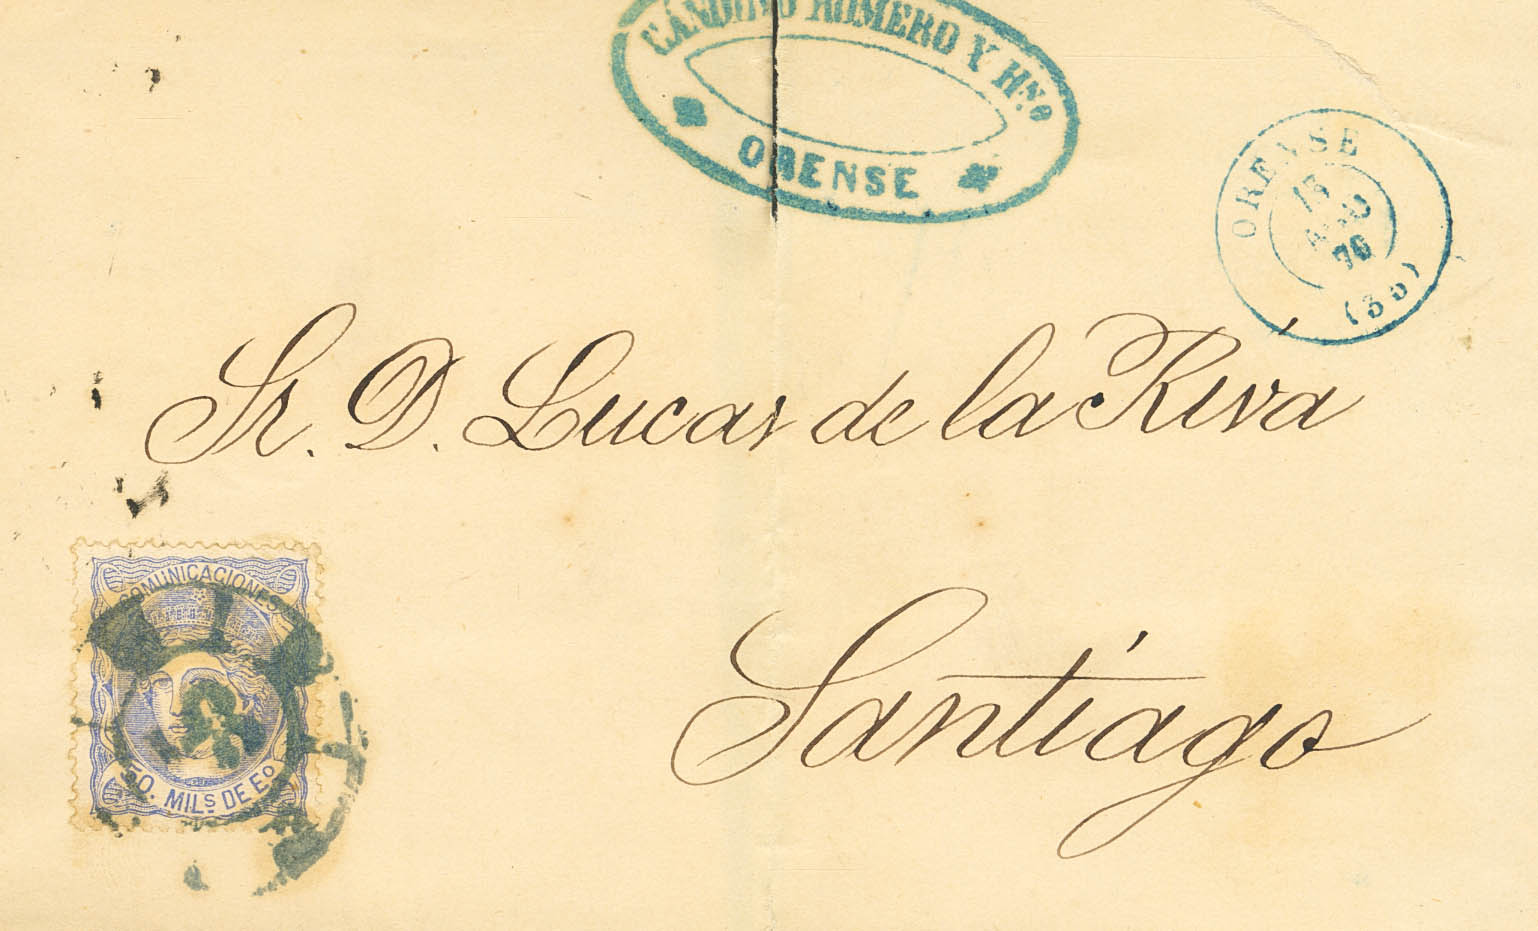 CÁNDIDO ROMERO Y HNO
ORENSE
ORENSE
15
AGO
70
Sr. D. Lucas de la Riva
Santiago
COMUNICACIONES
50. MILS DE EO.